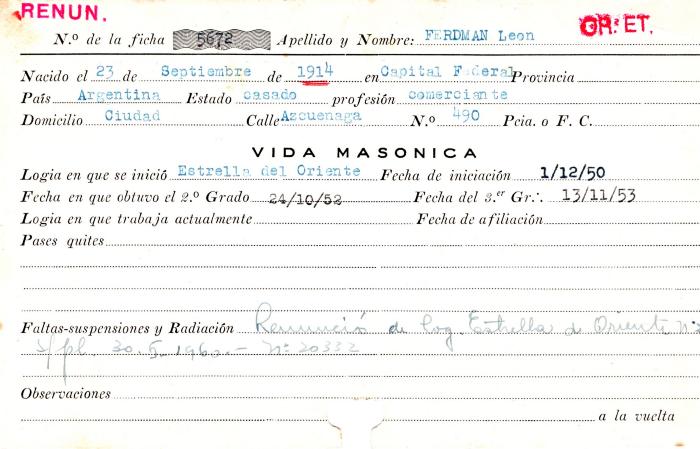 RENUN.
OR∴ ET.
N.º de la ficha 5672 Apellido y Nombre: FERDMAN Leon
Nacido el 23 de Septiembre de 1914 en Capital Federal Provincia
País Argentina Estado casado profesión comerciante
Domicilio Ciudad Calle Azcuenaga N.º 490 Pcia. o F. C.
VIDA MASONICA
Logia en que se inició Estrella del Oriente Fecha de iniciación 1/12/50
Fecha en que obtuvo el 2.º Grado 24/10/52 Fecha del 3.er Gr∴. 13/11/53
Logia en que trabaja actualmente Fecha de afiliación
Pases quites
Faltas-suspensiones y Radiación Renunció de Log. Estrella d Oriente Nº
s/pl. 30.5.1960.- Nº 20332
Observaciones
a la vuelta